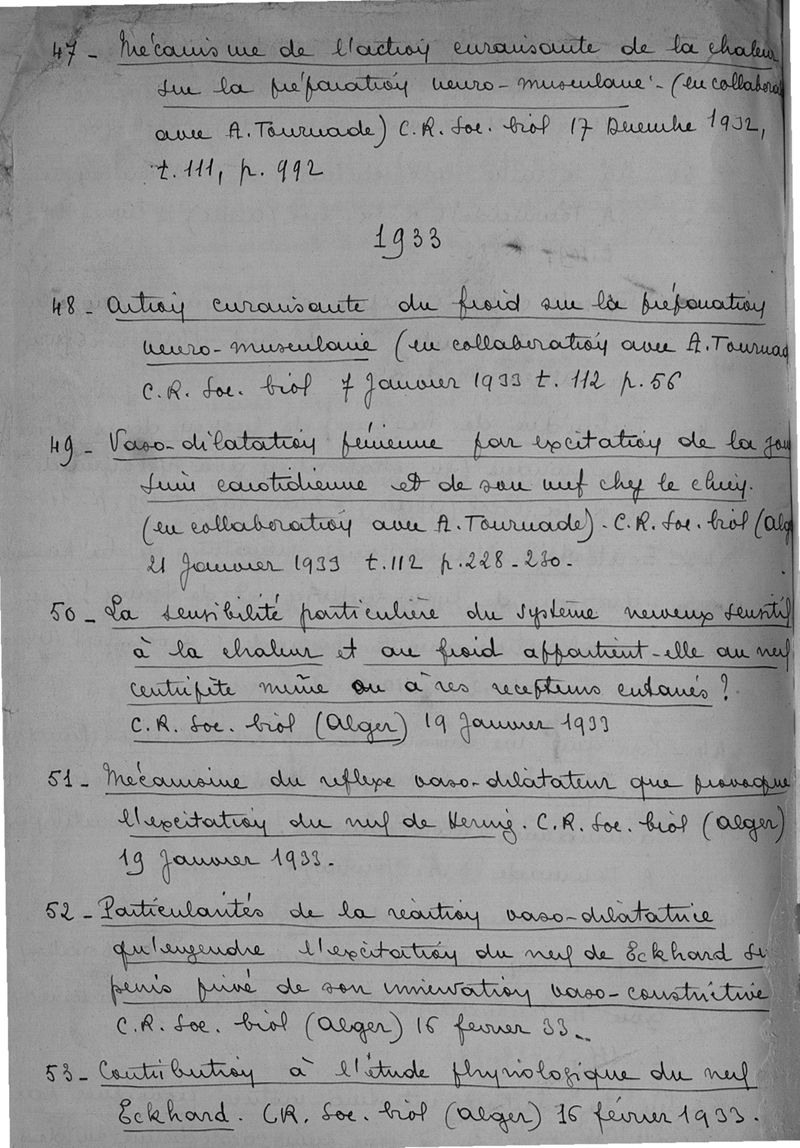 47 - Mécanisme de l'action curarisante de la chaleur
sur la préparation neuro-musculaire - (en collabora
avec A. Tournade) C.R. Soc. biol 17 Decembre 1932,
t. 111, p. 992
1933
48 - Action curarisante du froid sur la préparation
neuro-musculaire (en collaboration avec A. Tournad
C.R. Soc. biol 7 Janvier 1933 t. 112 p. 56
49 - Vaso-dilatation pénienne par excitation de la
sinu carotidienne et de son nerf chez le chien.
(en collaboration avec A. Tournade). C.R. Soc. biol (Alg
21 Janvier 1933 t. 112 p. 228-230.
50 - La sensibilité particulière du système nerveux sensitif
à la chaleur et au froid appartient-elle au nerf
centripète même ou à ses recepteurs cutanés ?
C.R. Soc. biol (Alger) 19 Janvier 1933
51 - Mécanisme du reflexe vaso-dilatateur que provoque
l'excitation du nerf de Hering. C.R. Soc. biol (Alger)
19 Janvier 1933.
52 - Particularités de la réaction vaso-dilatatrice
qu'engendre l'excitation du nerf de Eckhard
pénis privé de son innervation vaso-constrictive
C.R. Soc. biol (Alger) 16 fevrier 33.
53 - Contribution à l'étude physiologique du nerf
Eckhard. C.R. Soc. biol (Alger) 16 février 1933.